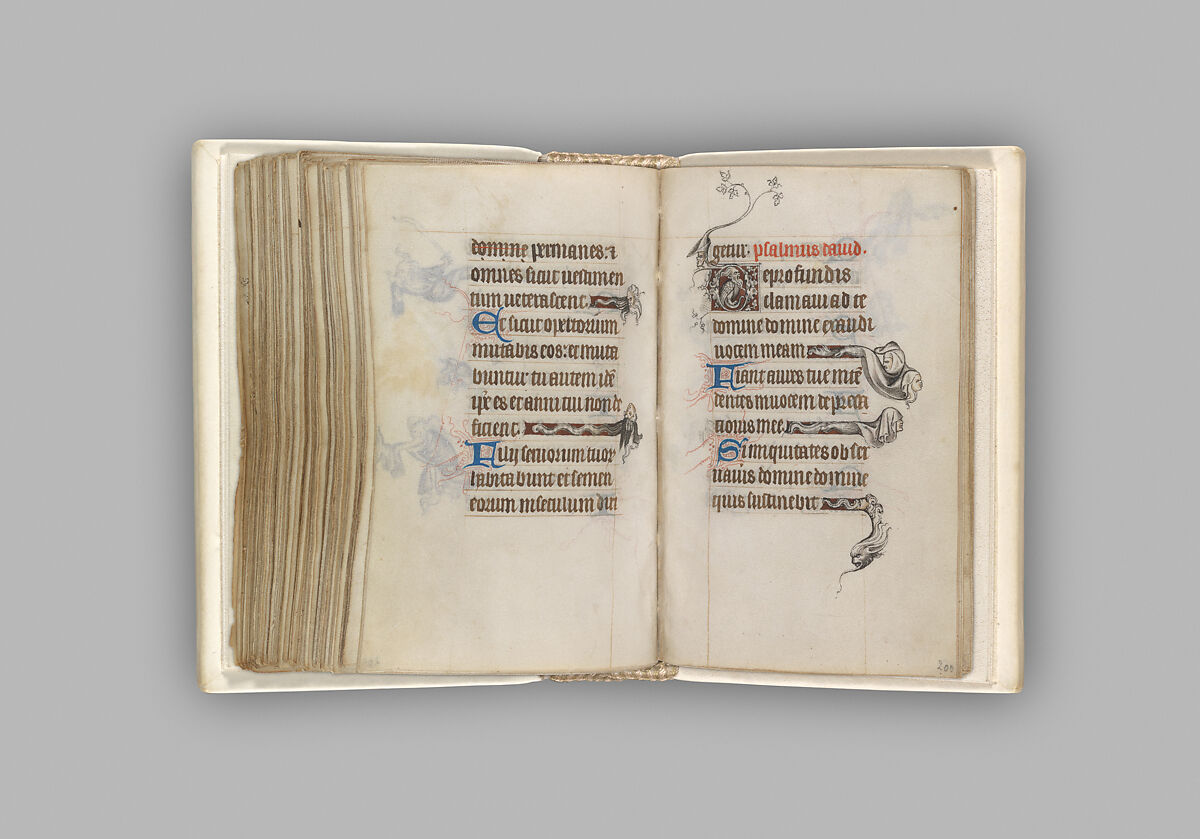 domine permanes: ⁊
omnes sicut uestimen
tum ueterascent.
Et sicut opertorium
mutabis eos: et muta
buntur tu autem idē
ip̄e es et anni tui non de
ficient.
Filij seruorum tuor
habitabunt et semen
eorum in seculum diri
getur. psalmus dauid.
De profundis
clamaui ad te
domine domine exaudi
uocem meam
Fiant aures tue intē
dentes in uocem deprecā
tionis mee.
Si iniquitates obser
uauis domine domine
quis sustinebit
200